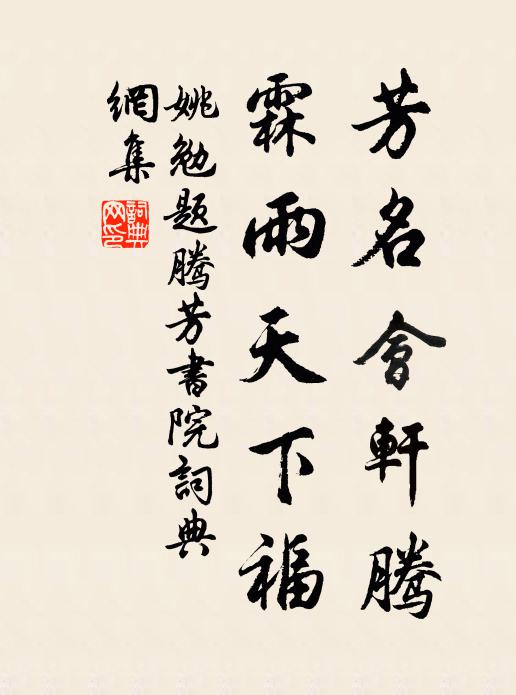 芳名會軒騰
霖雨天下福
姚勉題騰芳書院詞典
網集
詞典
网印